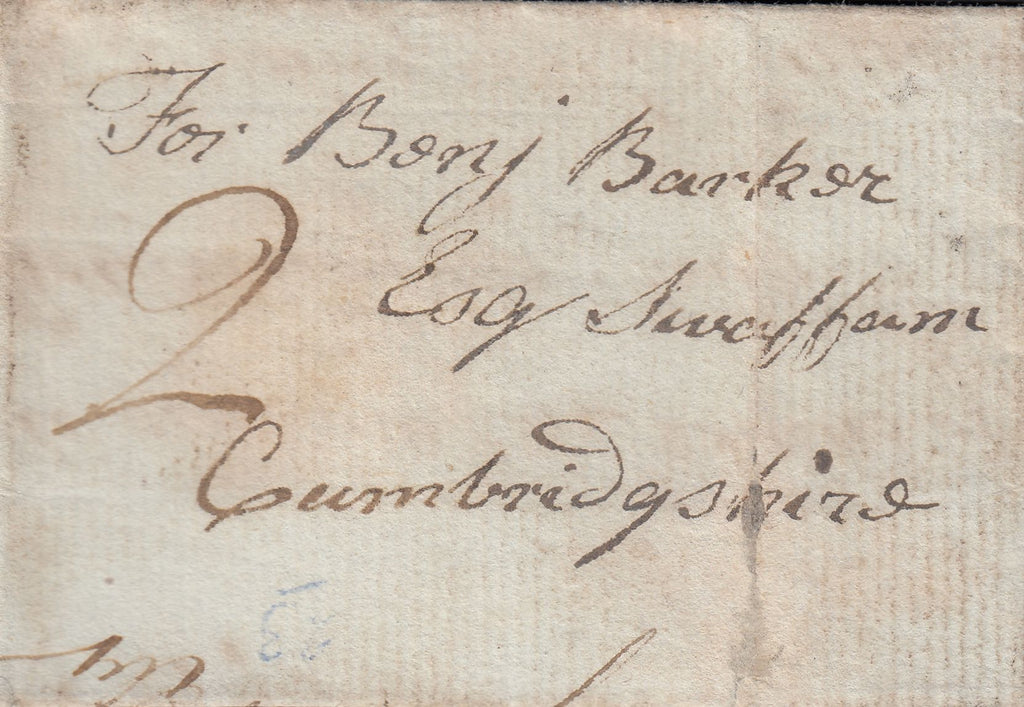 For Benj Barker
2
Esq Swaffam
Cambridgshire